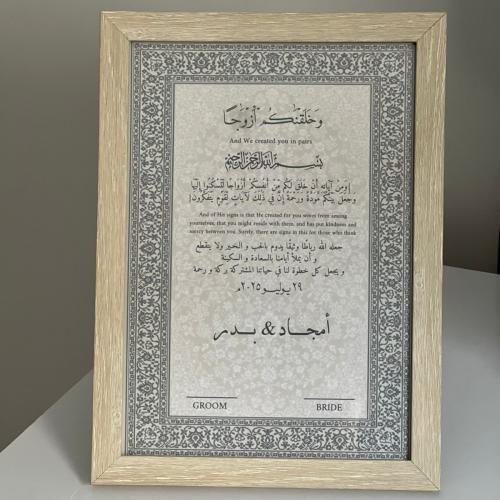 وَخَلَقْنَٰكُمْ أَزْوَٰجًا
And We created you in pairs
بِسْمِ اللَّهِ الرَّحْمَٰنِ الرَّحِيمِ
|وَمِنْ آيَاتِهِ أَنْ خَلَقَ لَكُم مِّنْ أَنفُسِكُمْ أَزْوَاجًا لِّتَسْكُنُوا إِلَيْهَا
وَجَعَلَ بَيْنَكُم مَّوَدَّةً وَرَحْمَةً إِنَّ فِي ذَٰلِكَ لَآيَاتٍ لِّقَوْمٍ يَتَفَكَّرُونَ|
And of His signs is that He created for you wives from among
yourselves, that you might reside with them, and has put kindness and
mercy between you. Surely, there are signs in this for those who think
جعله الله رباطًا وثيقًا يدوم بالحب و الخير ولا ينقطع
و أن يملأ أيامنا بالسعادة و السكينة
و يجعل كل خطوة لنا في حياتنا المشتركة بركة و رحمة
٢٩ يوليو ٢٠٢٥م
أمجاد & بدر
GROOM
BRIDE